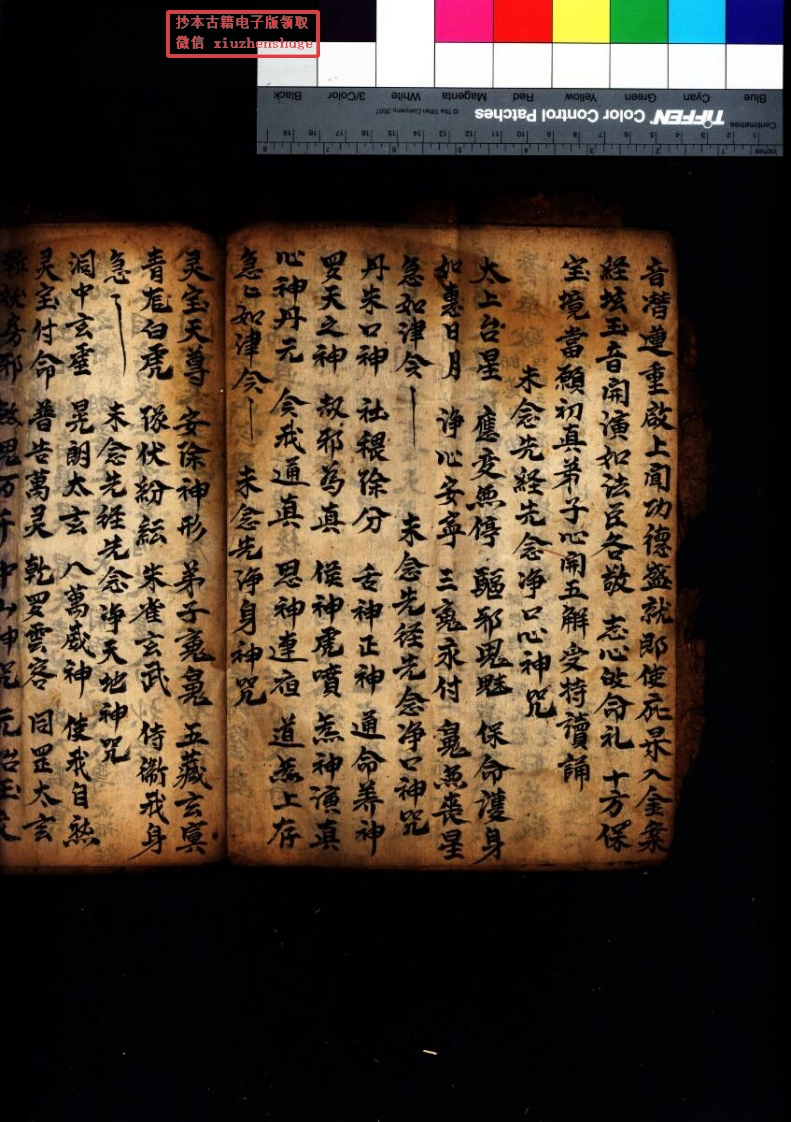 抄本古籍电子版领取
微信 xiuzhenshuge
Blue Cyan Green Yellow Red Magenta White 3/Color Black
TIFFEN Color Control Patches
© The Tiffen Company, 2007
Centimetres
Inches
音潛遵重啟上聞功德盛就即使庶昇入金案
経垓玉音開演如法臣各敬 志心皈命礼 十方保
宝境當願初真弟子心開五解受持讀誦
未念先経先念净口心神咒
太上台星 應变無停 驅邪鬼魅 保命護身
如惠日月 浄心安寧 三䰟永付 䰟無丧星
急如津令 未念先経先念净口神咒
丹朱口神 社穢除分 舌神正神 通命养神
罗天之神 却邪為真 候神虎噴 炁神演真
心神丹元 令我通真 思神連𤴆 道炁上存
急〻如津令 未念先浄身神咒
灵宝天尊 安徐神形 弟子䰟鬼 五藏玄冥
青龙白虎 隊伏紛紜 朱雀玄武 侍衞我身
急〻 未念先経先念净天地神咒
洞中玄虛 晃朗太玄 八萬威神 使我自然
灵宝付命 普告萬灵 乾罗雲容 同罡太玄
斬妖